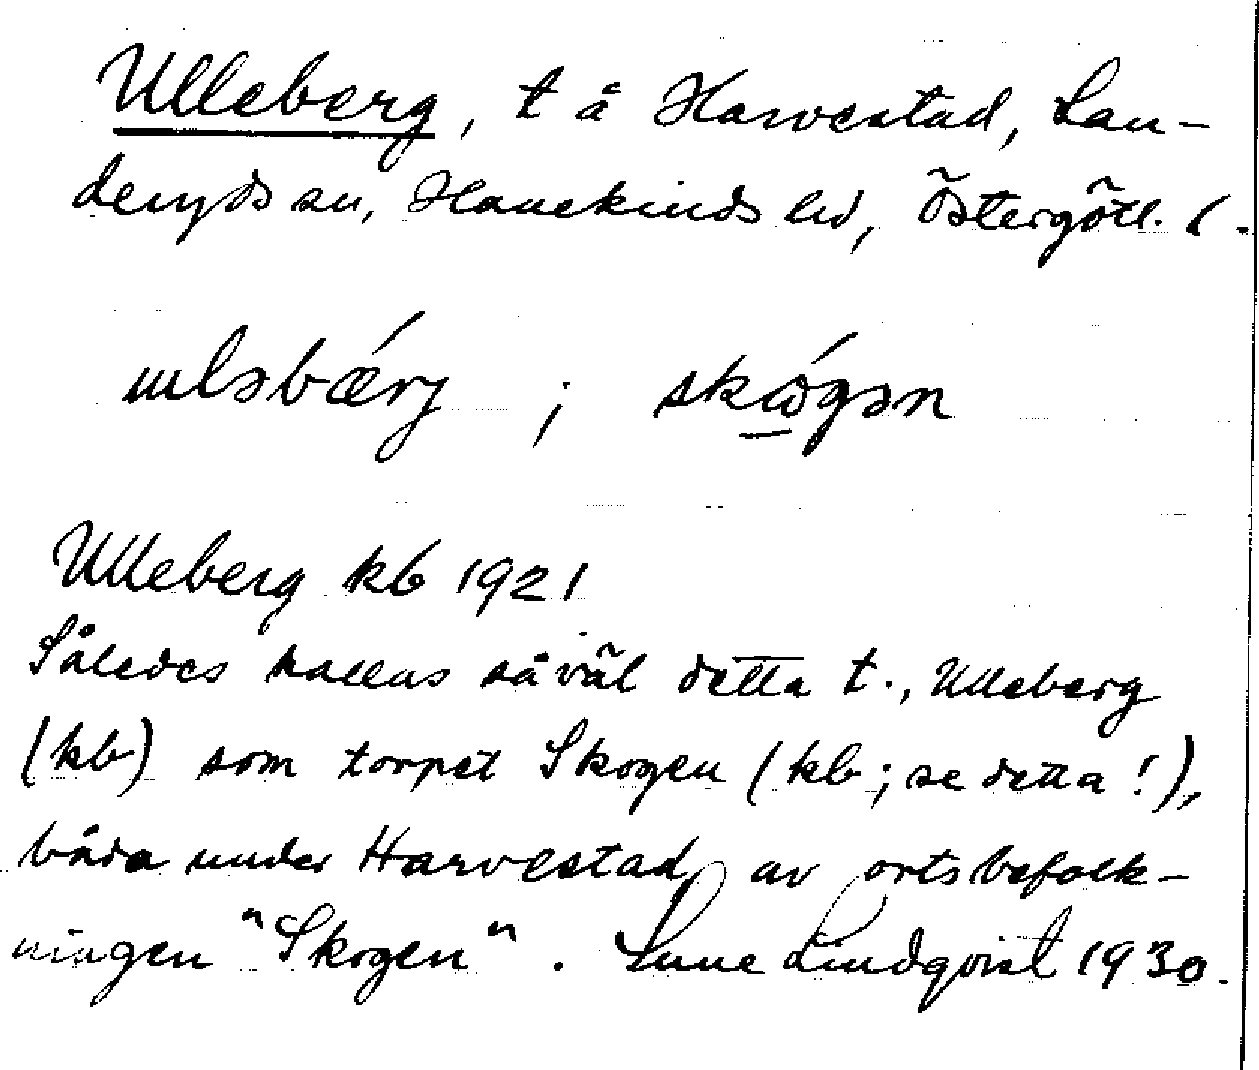 Ulleberg, t å Harvestad, Lan-
deryds sn, Hanekinds hd, Östergötl. l.
ɯləbǽrj ; skɷ́gən
Ulleberg kb 1921
Således kallas såväl detta t., Ulleberg
(kb) som torpet Skogen (kb; se detta!),
båda under Harvestad, av ortsbefolk-
ningen "Skogen". Sune Lindqvist 1930.